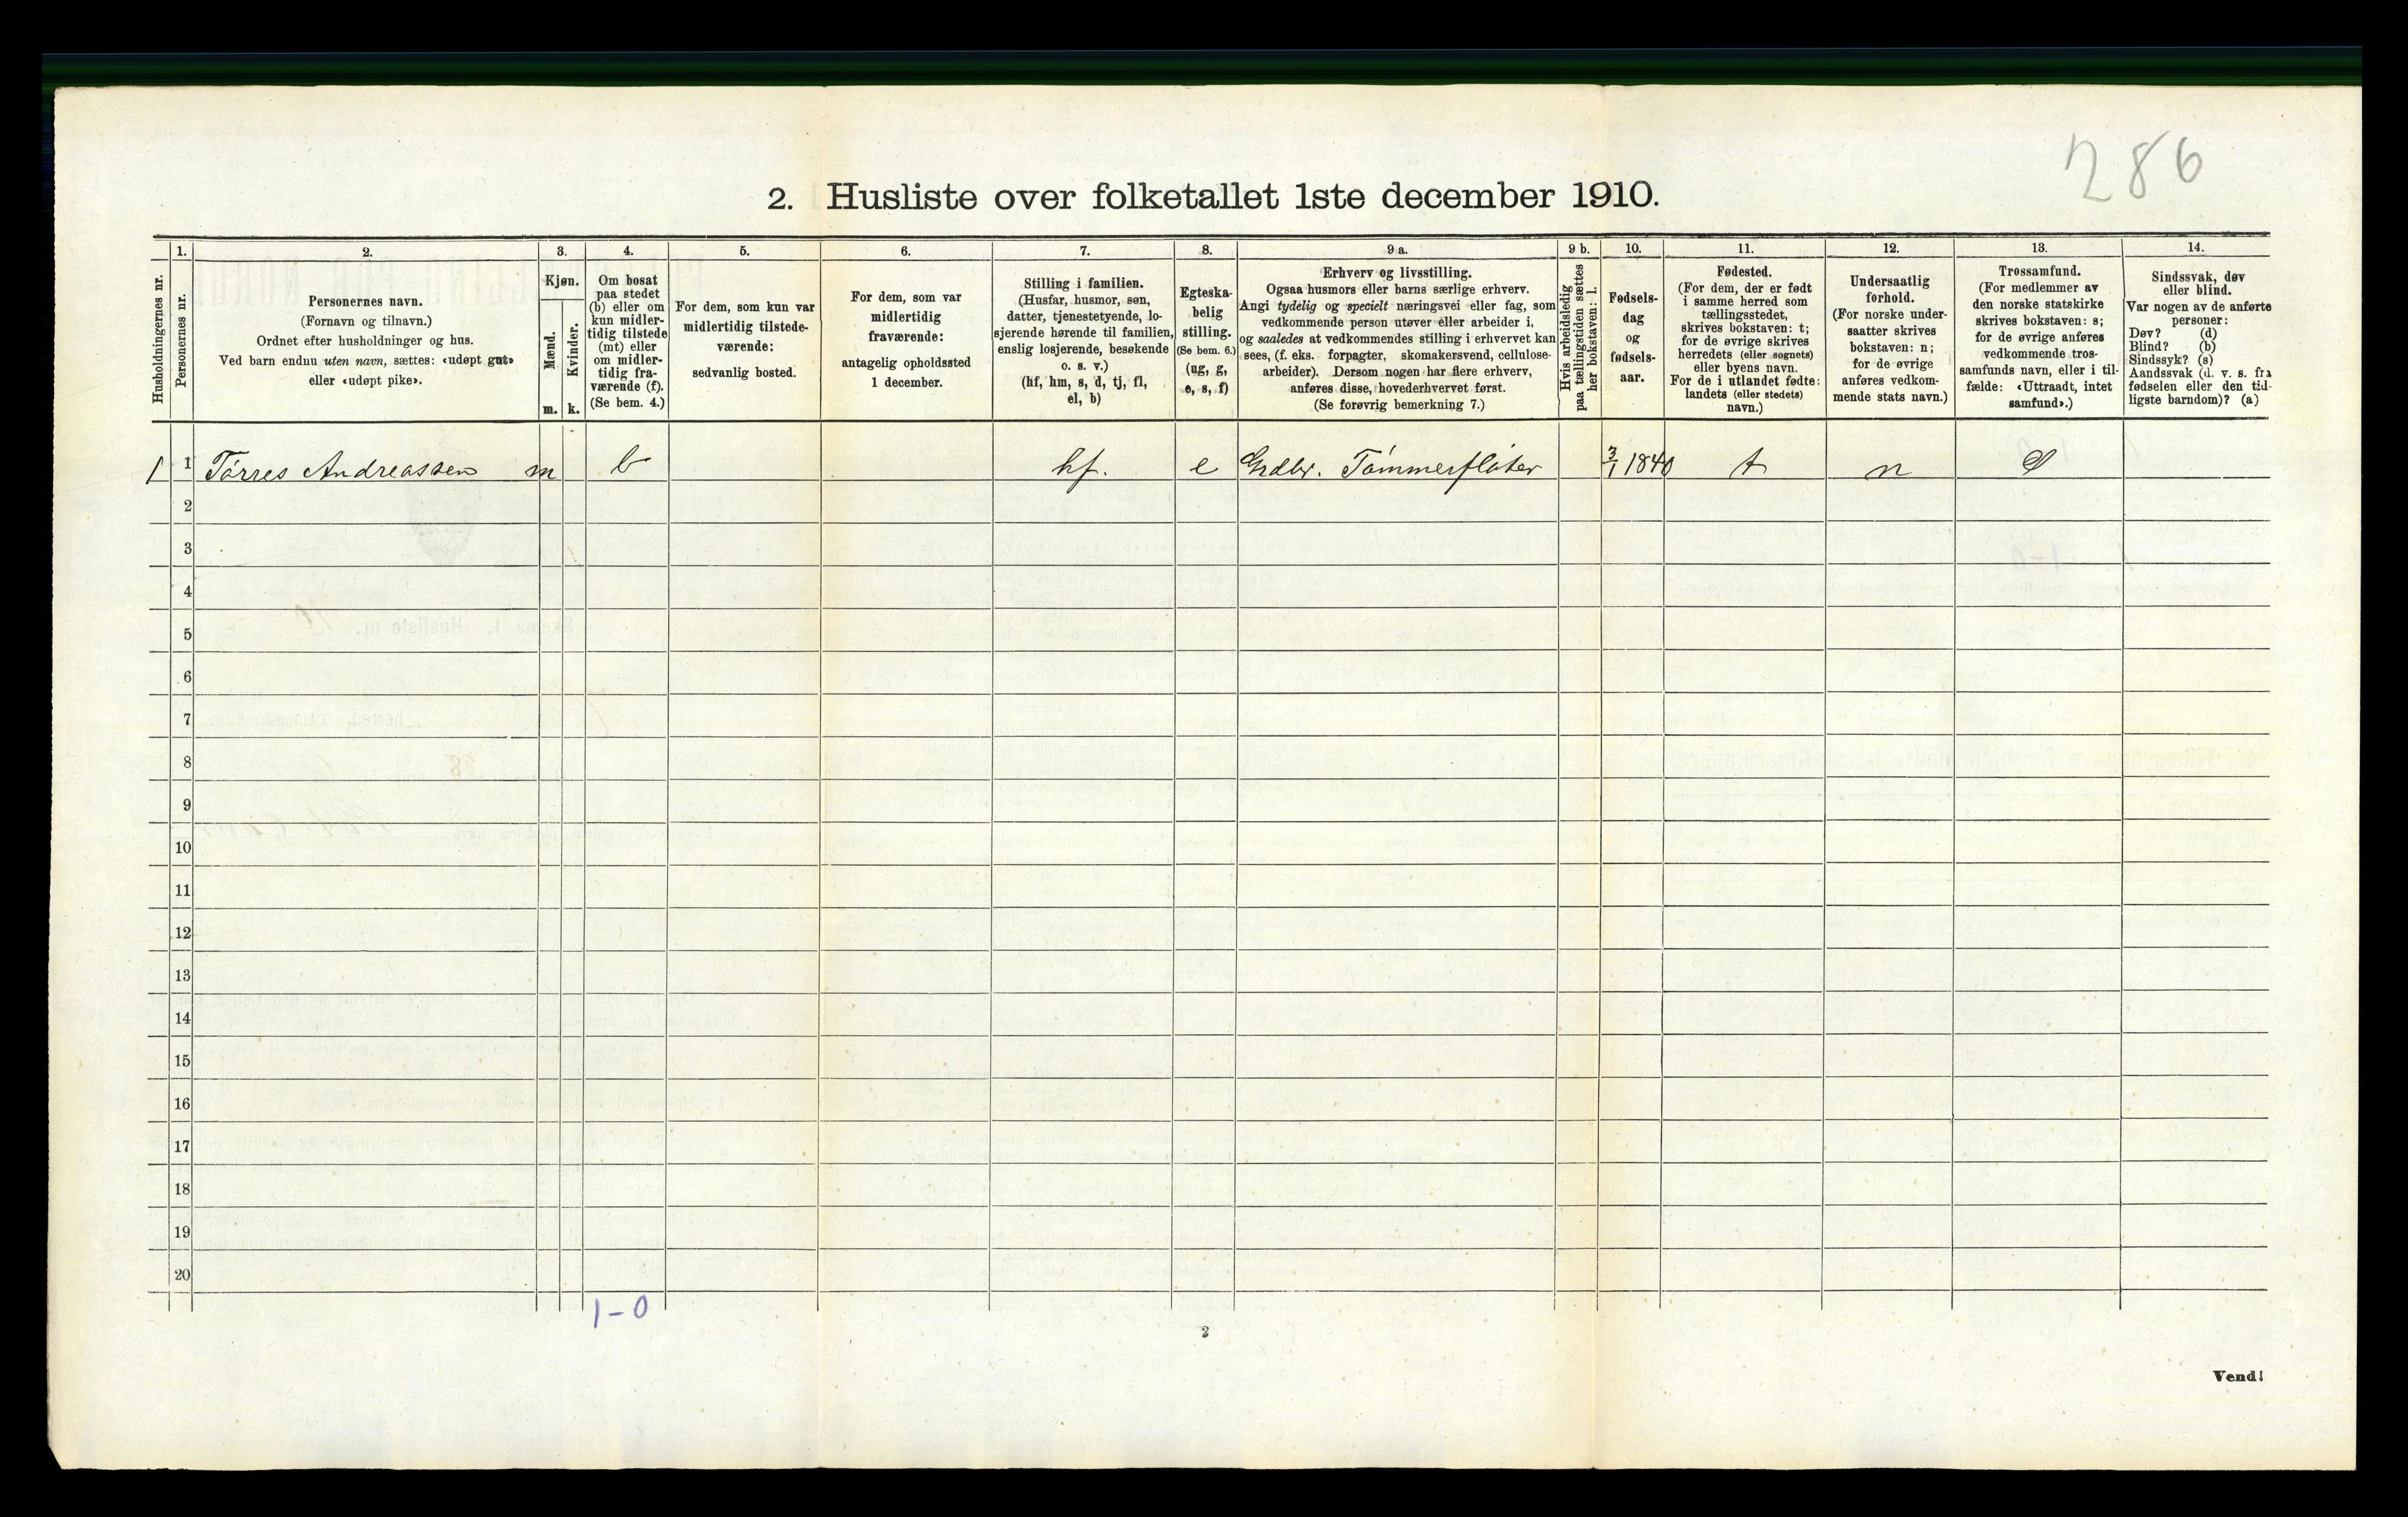 286
2. Husliste over folketallet 1ste december 1910.
Husholdningernes nr.
1.
Personernes nr.
2.
Personernes navn.
(Fornavn og tilnavn.)
Ordnet efter husholdninger og hus.
Ved barn endnu uten navn, sættes: «udøpt gut»
eller «udøpt pike».
3.
Kjøn.
Mænd.
Kvinder.
m. k.
4.
Om bosat
paa stedet
(b) eller om
kun midler-
tidig tilstede
(mt) eller
om midler-
tidig fra-
værende (f).
(Se bem. 4.)
5.
For dem, som kun var
midlertidig tilstede-
værende:
sedvanlig bosted.
6.
For dem, som var
midlertidig
fraværende:
antagelig opholdssted
1 december.
7.
Stilling i familien.
(Husfar, husmor, søn,
datter, tjenestetyende, lo-
sjerende hørende til familien,
enslig losjerende, besøkende
o. s. v.)
(hf, hm, s, d, tj, fl,
el, b)
8.
Egteska-
belig
stilling.
(Se bem. 6.)
(ug, g,
e, s, f)
9 a.
Erhverv og livsstilling.
Ogsaa husmors eller barns særlige erhverv.
Angi tydelig og specielt næringsvei eller fag, som
vedkommende person utøver eller arbeider i,
og saaledes at vedkommendes stilling i erhvervet kan
sees, (f. eks. forpagter, skomakersvend, cellulose-
arbeider). Dersom nogen har flere erhverv,
anføres disse, hovederhvervet først.
(Se forøvrig bemerkning 7.)
9 b.
Hvis arbeidsledig
paa tællingstiden sættes
her bokstaven: l.
10.
Fødsels-
dag
og
fødsels-
aar.
11.
Fødested.
(For dem, der er født
i samme herred som
tællingsstedet,
skrives bokstaven: t;
for de øvrige skrives
herredets (eller sognets)
eller byens navn.
For de i utlandet fødte:
landets (eller stedets)
navn.)
12.
Undersaatlig
forhold.
(For norske under-
saatter skrives
bokstaven: n;
for de øvrige
anføres vedkom-
mende stats navn.)
13.
Trossamfund.
(For medlemmer av
den norske statskirke
skrives bokstaven: s;
for de øvrige anføres
vedkommende tros-
samfunds navn, eller i til-
fælde: «Uttraadt, intet
samfund».)
14.
Sindssvak, døv
eller blind.
Var nogen av de anførte
personer:
Døv? (d)
Blind? (b)
Sindssyk? (s)
Aandssvak (d. v. s. fra
fødselen eller den tid-
ligste barndom)? (a)
1 1 Tórres Andreassen m b hf. e Grdbr. Tómmerflóter 3/1 1840 t n S
2
3
4
5
6
7
8
9
10
11
12
13
14
15
16
17
18
19
20
1-0
2
Vend!